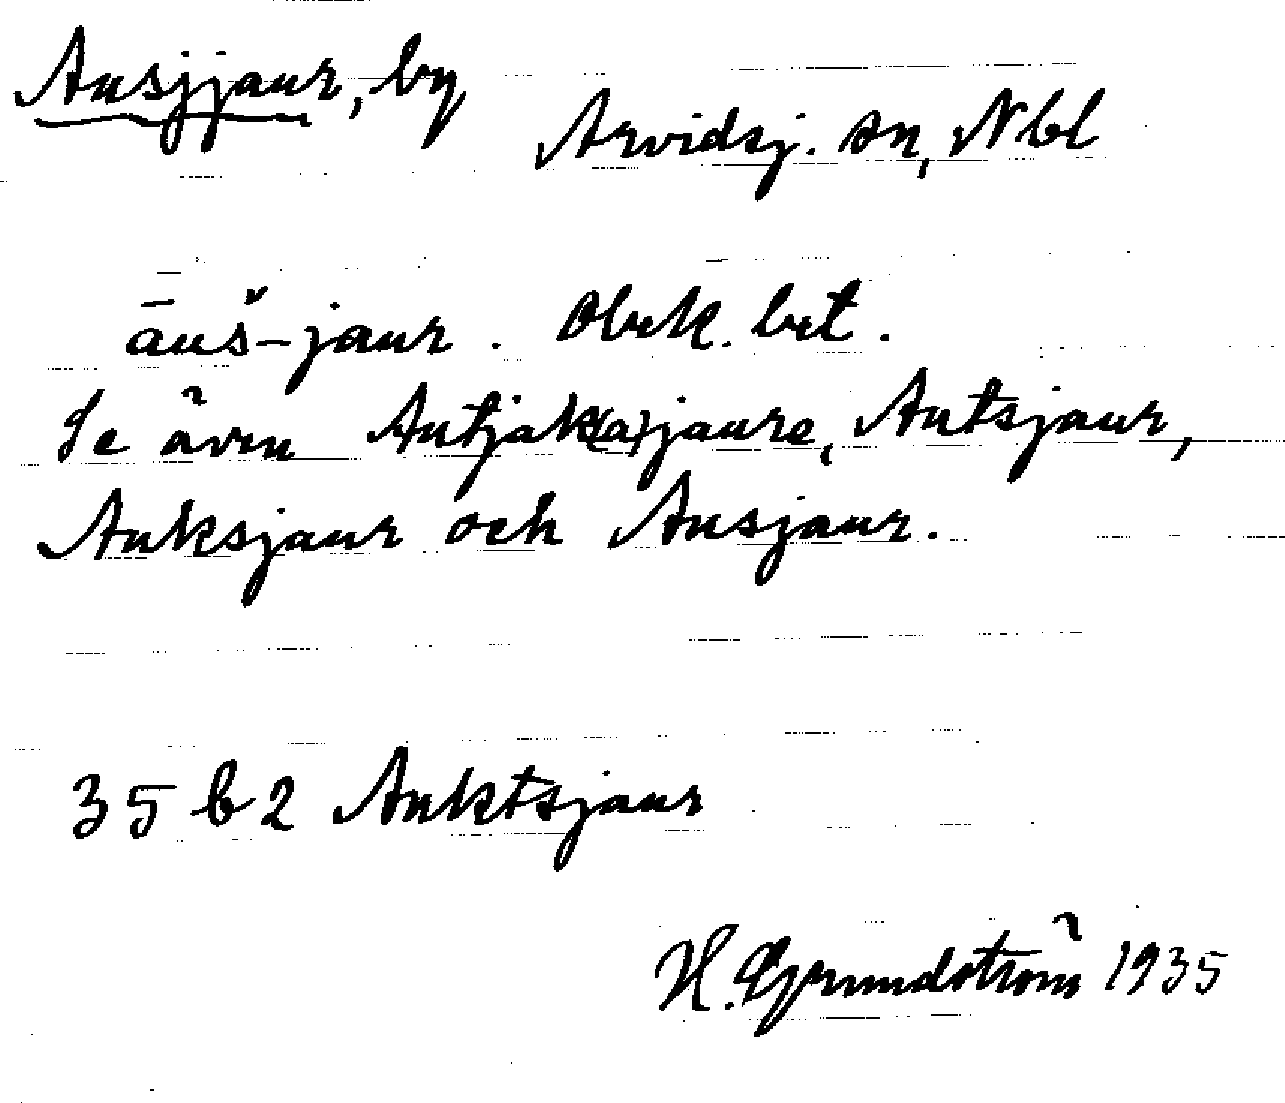 Ausjjaur, by
Arvidsj. sn, Nbl
āuš-jaur. Obek. bet.
Se även Autjak(a)jaure, Autsjaur,
Auksjaur och Ausjaur.
35 b 2 Auktsjaur
H. Grundström 1935